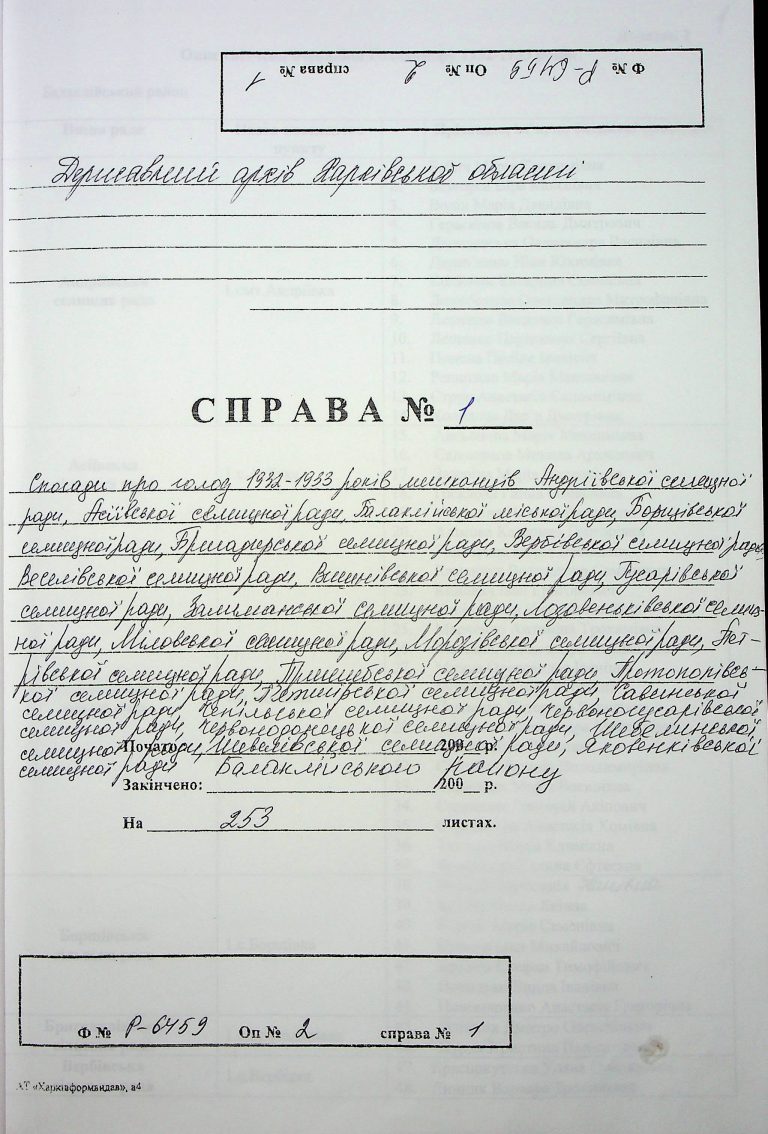 Ф № Р-6459 Оп № 2 справа № 1
Державний архів Харківської області
СПРАВА № 1
Спогади про голод 1932-1933 років мешканців Андріївської селищної
ради, Асіївської селищної ради, Балаклійської міської ради, Борщівської
селищної ради, Бригадирської селищної ради, Вербівської селищної ради,
Веселівської селищної ради, Вишнівської селищної ради, Гусарівської
селищної ради, Залиманської селищної ради, Лозовеньківської селищ-
ної ради, Міловської селищної ради, Морозівської селищної ради, Пет-
рівської селищної ради, Пришибської селищної ради Протопопівсь-
кої селищної ради, П'ятигірської селищної ради, Савинської
селищної ради Чепільської селищної ради, Червоногусарівської
селищної ради, Червонодонецької селищної ради, Шебелинської
селищної ради, Шевелівської селищної ради, Яковенківської
Почато: 200 р.
селищної ради Балаклійського району
Закінчено: 200 р.
На 253 листах.
Ф № Р-6459 Оп № 2 справа № 1
АТ «Харківформвидав», а4